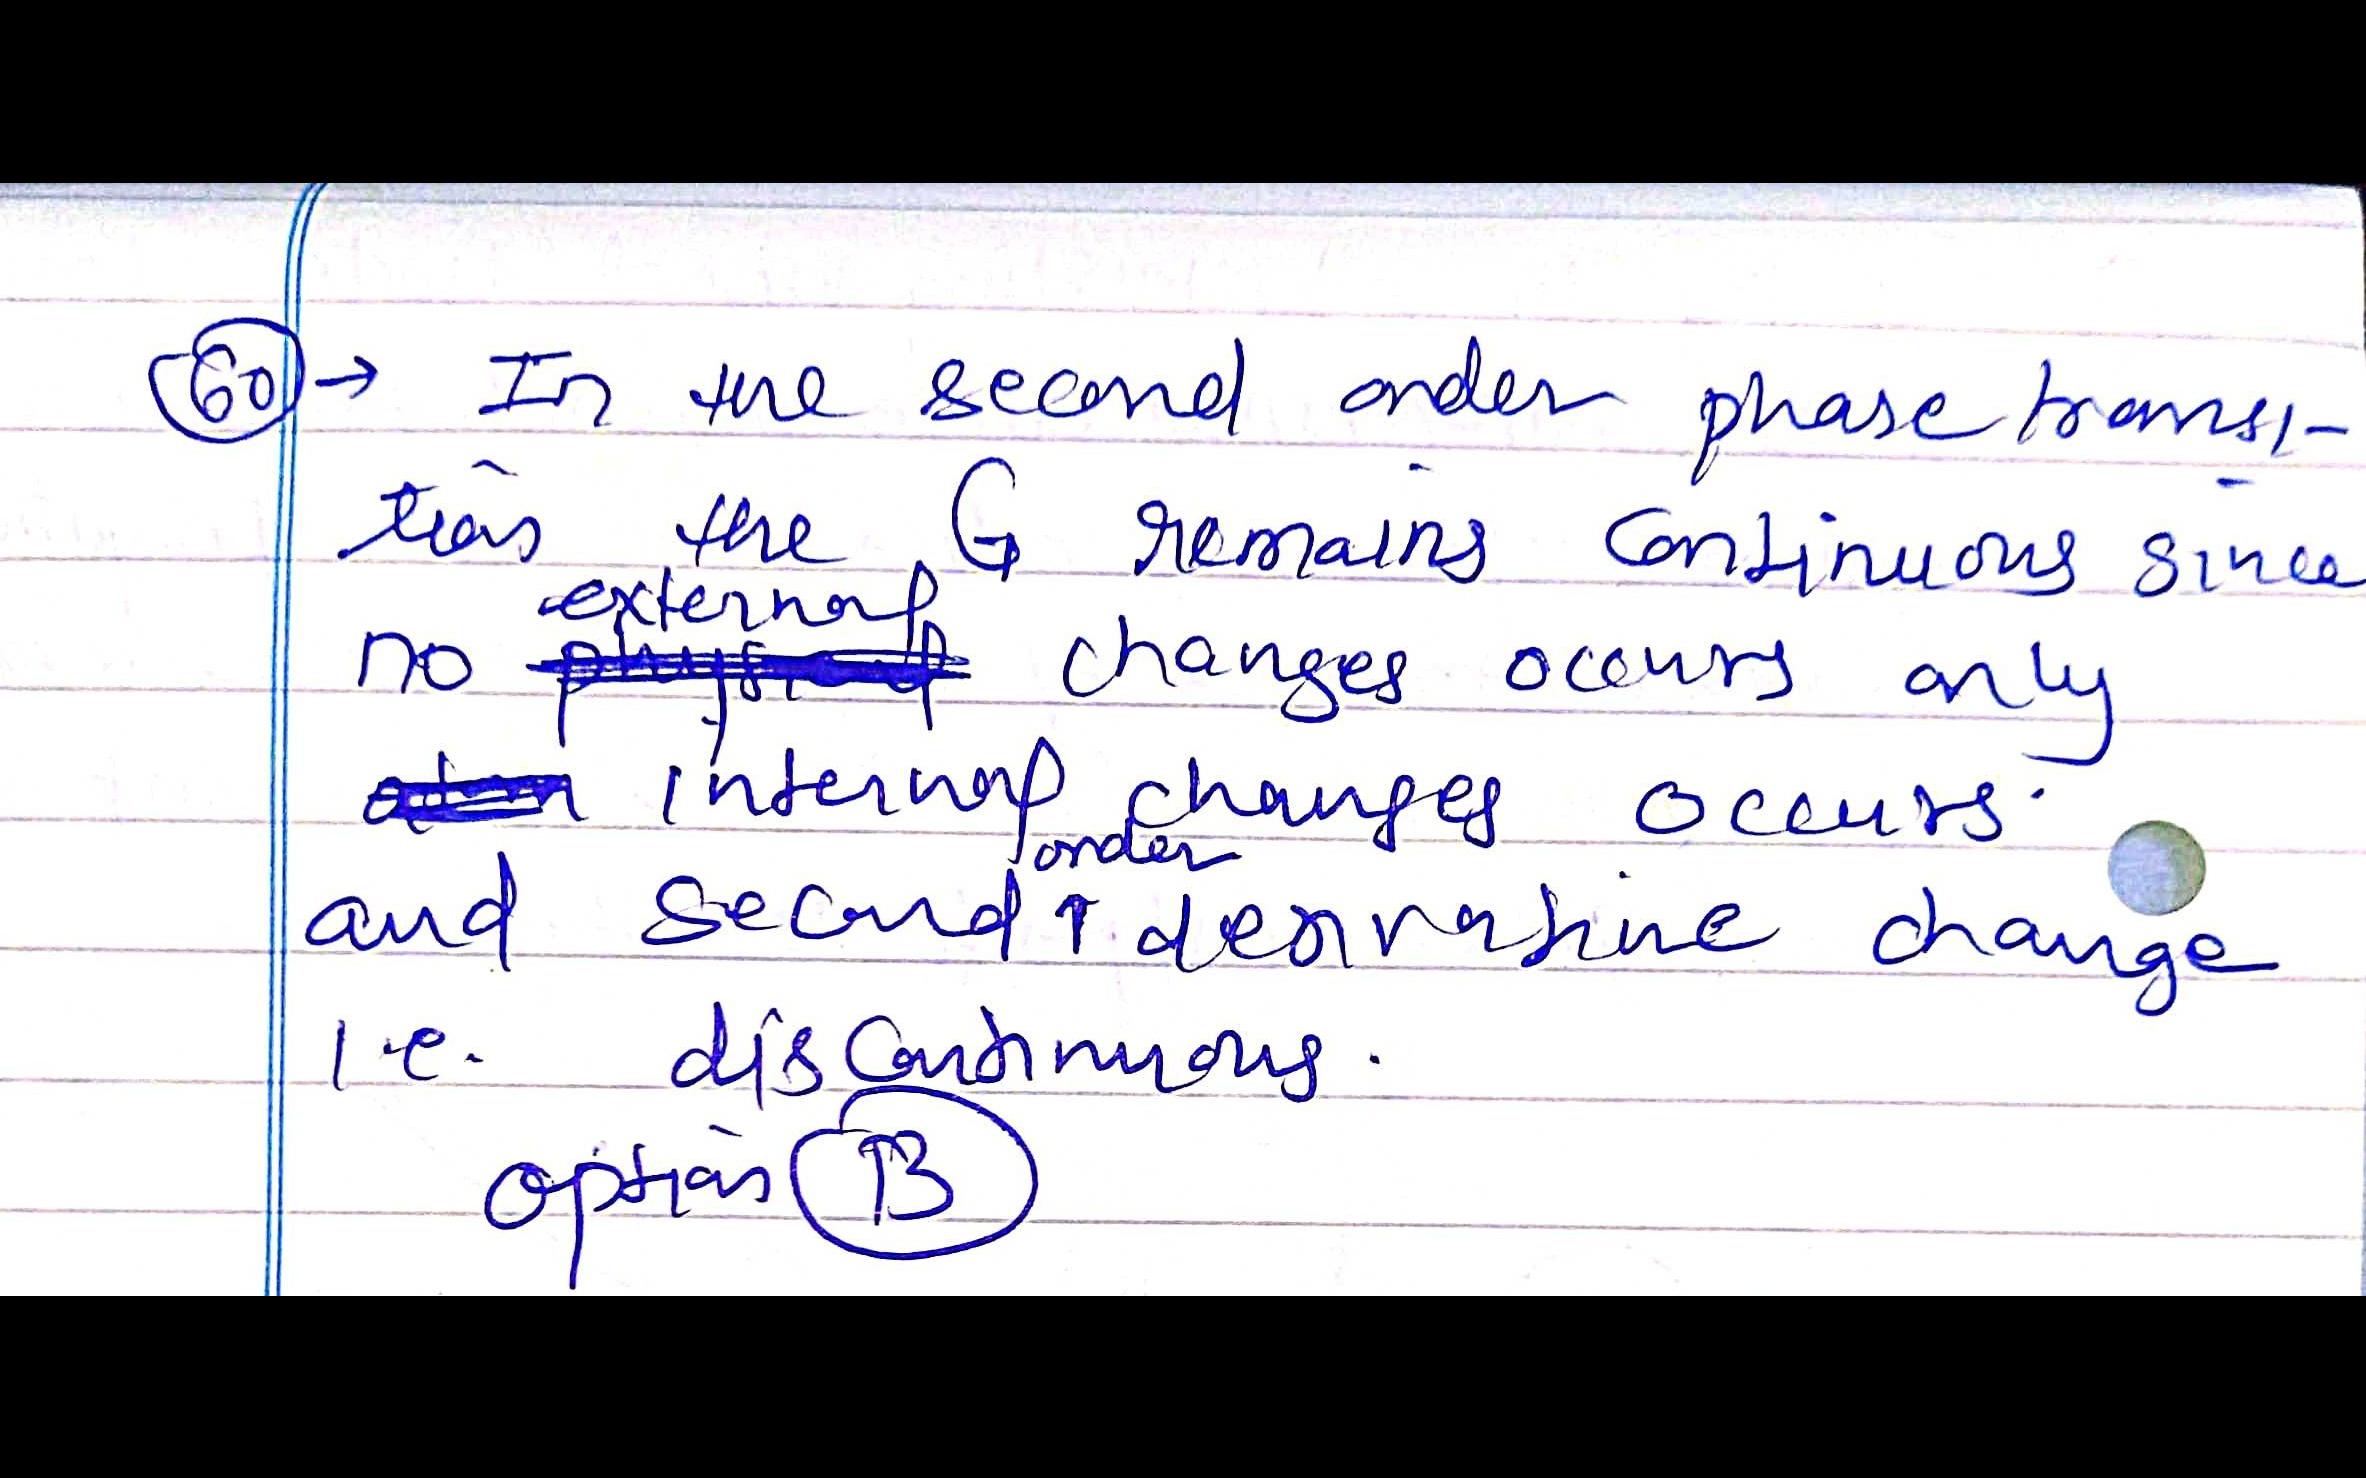 60 → In the second order phase transi-
tion the G remains continuous since
external
no physical changes occurs only
internal changes occurs.
order
and second ↑ derivative change
i.e. discontinuous.
option B